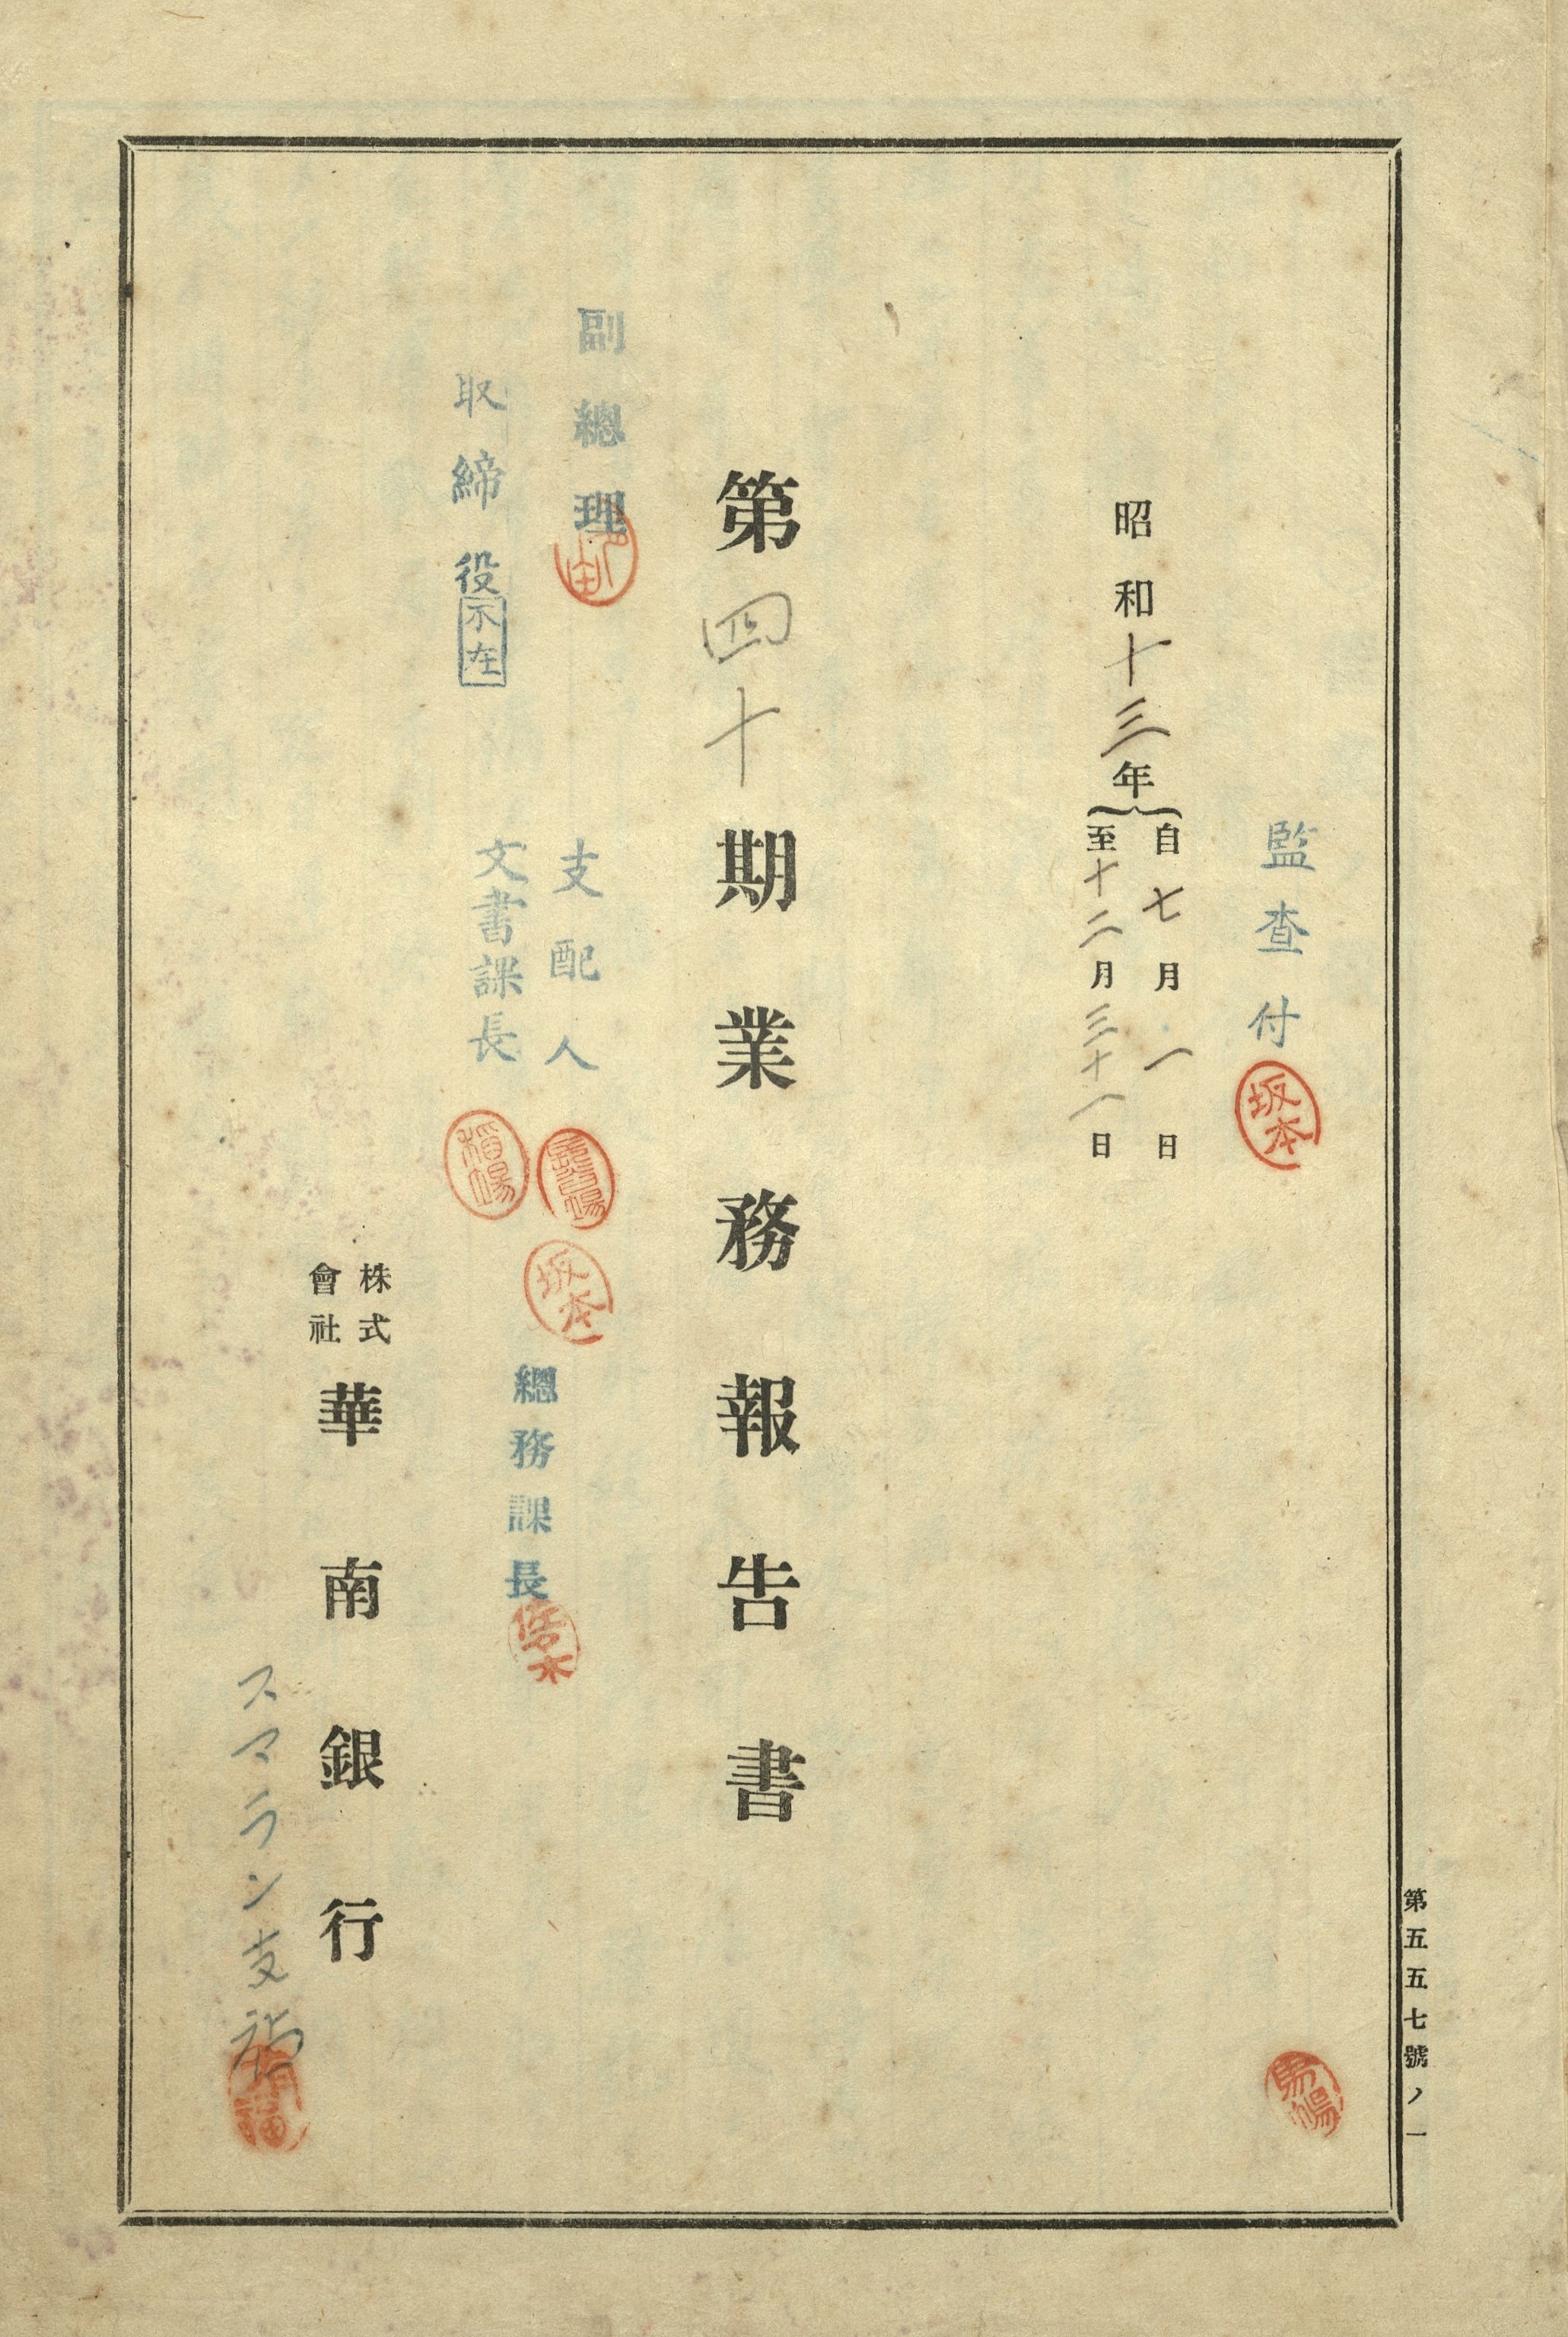 監査付
坂本
昭和十三年
自七月一日
至十二月三十一日
第四十期業務報告書
副總理
取締役
不在
支配人
文書課長
坂本
總務課長
株式會社
華南銀行
スマラン支
第五五七號ノ一